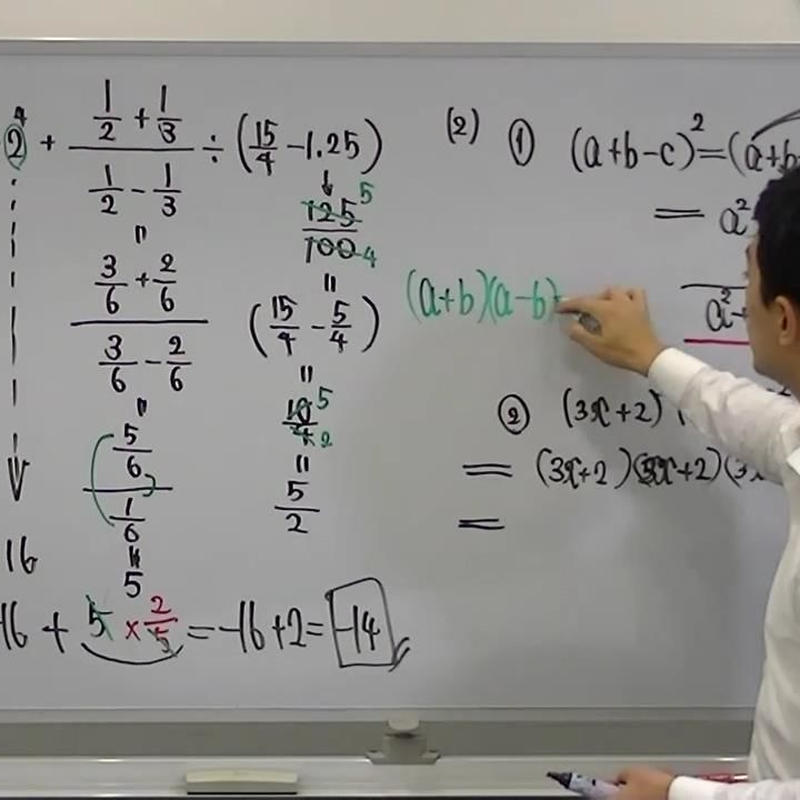 2⁴ + (1/2 + 1/3)/(1/2 - 1/3) ÷ (15/4 - 1.25)
↓
125/100 5 4
=
(3/6 + 2/6)/(3/6 - 2/6)
=
(15/4 - 5/4)
=
10/4 5 2
=
(5/6)/(1/6)
=
5/2
16
=
5
-16 + 5 × 2/5 = -16 + 2 = -14
(2) ① (a+b-c)² = (a+b
= a²
a²+
(a+b)(a-b)=
② (3x+2)
= (3x+2)(3x+2)(3x
=